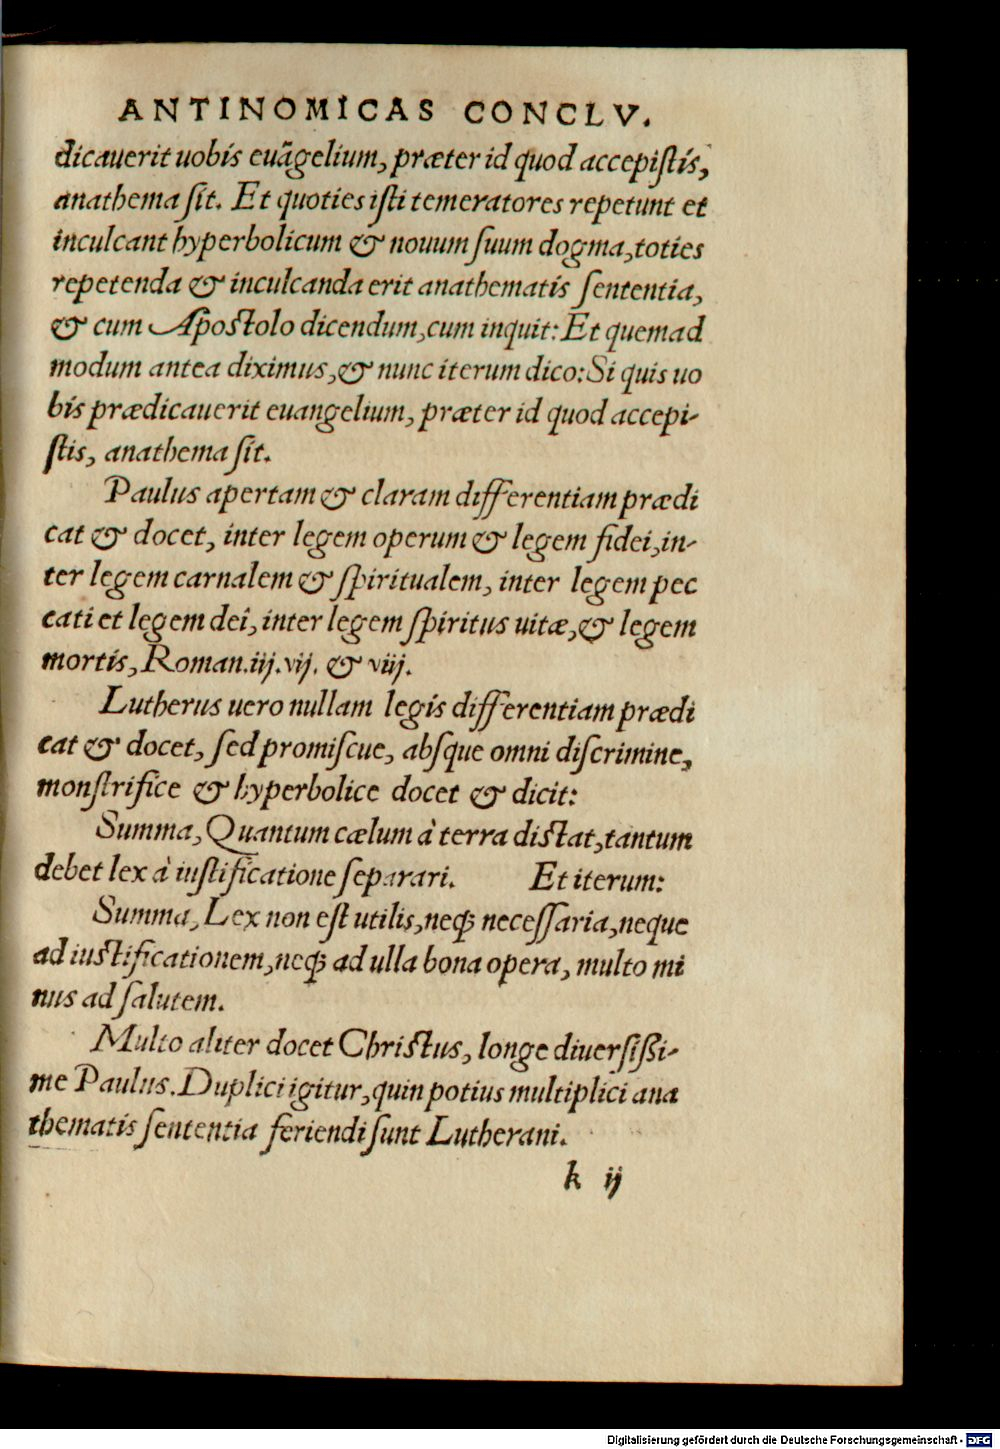 ANTINOMICAS CONCLV.
dicauerit uobis euãgelium, præter id quod accepistis,
anathema sit. Et quoties isti temeratores repetunt et
inculcant hyperbolicum & nouum suum dogma, toties
repetenda & inculcanda erit anathematis sententia,
& cum Apostolo dicendum, cum inquit: Et quemad
modum antea diximus, & nunc iterum dico: Si quis uo
bis prædicauerit euangelium, præter id quod accepi-
stis, anathema sit.
Paulus apertam & claram differentiam prædi
cat & docet, inter legem operum & legem fidei, in-
ter legem carnalem & spiritualem, inter legem pec
cati et legem dei, inter legem spiritus uitæ, & legem
mortis, Roman. iij. vij. & viij.
Lutherus uero nullam legis differentiam prædi
cat & docet, sed promiscue, absque omni discrimine,
monstrifice & hyperbolice docet & dicit:
Summa, Quantum cælum à terra distat, tantum
debet lex à iustificatione separari. Et iterum:
Summa, Lex non est utilis, neq; necessaria, neque
ad iustificationem, neq; ad ulla bona opera, multo mi
nus ad salutem.
Multo aliter docet Christus, longe diuersißi-
me Paulus. Duplici igitur, quin potius multiplici ana
thematis sententia feriendi sunt Lutherani.
k ij
Digitalisierung gefördert durch die Deutsche Forschungsgemeinschaft - DFG